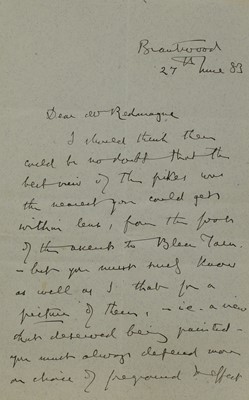 Brantwood
27th June 83
Dear Mr Redmayne
I should think there
could be no doubt that the
best view of the pikes was
the nearest you could get
within lens, from the foot
of the ascent to Blea Tarn.
- but you must surely know
as well as I that for a
picture of them, - i.e. a view
that deserved being painted -
you must always depend more
on choice of foreground & effect